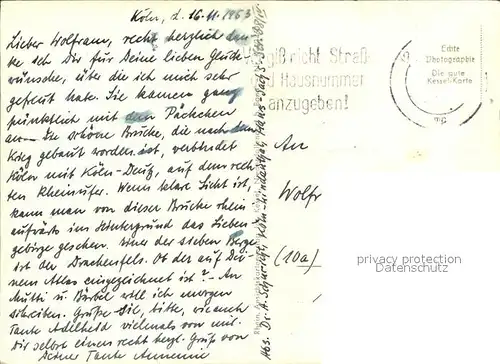 Köln, d. 16.11.1963
Lieber Wolfram, recht herzlich dan-
ke ich Dir für Deine lieben Glück-
wünsche, über die ich mich sehr
gefreut habe. Sie kamen ganz
pünktlich mit dem Päckchen
an. Die schöne Brücke, die nach dem
Krieg gebaut worden ist, verbindet
Köln mit Köln-Deutz, auf dem rech-
ten Rheinufer. Wenn klare Sicht ist,
kann man von dieser Brücke rhein-
aufwärts im Hintergrund das Sieben-
gebirge gesehen. Einer der sieben Berge
ist der Drachenfels. Ob der auf Dei-
nem Atlas eingezeichnet ist? - An
Mutti u. Bärbel will ich morgen
schreiben. Grüße Sie, bitte, wie auch
Tante Adelheid vielmals von mir.
Dir selbst einen recht herzl. Gruß von
Deiner Tante Annemie
Vergiß nicht Straß
und Hausnummer
anzugeben!
Echte
Photographie
Die gute
Kessel-Karte
An
Wolfr
(10a)
Abs. Dr. A. Köln-Lindenthal,
privacy protection
Datenschutz